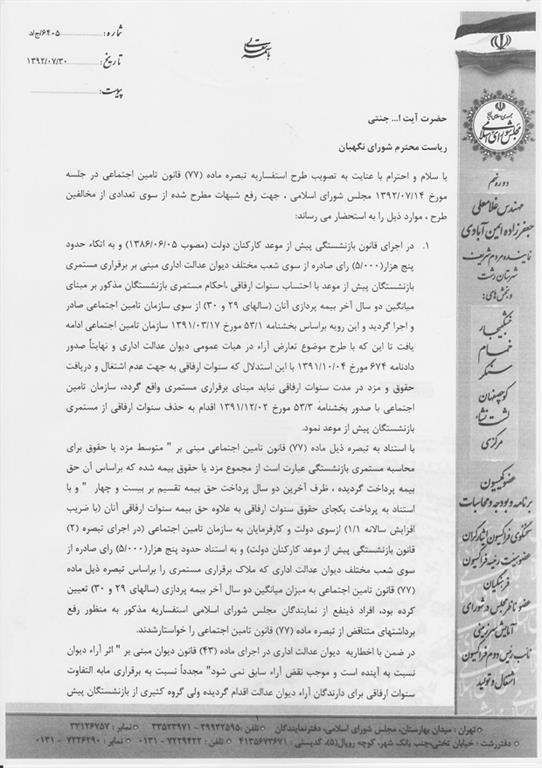 شماره: ۶۴۰۵/ج/د
تاریخ: ۱۳۹۲/۰۷/۳۰
پیوست:
حضرت آیت ا... جنتی
ریاست محترم شورای نگهبان
با سلام و احترام با عنایت به تصویب طرح استفساریه تبصره ماده (۷۷) قانون تامین اجتماعی در جلسه
مورخ ۱۳۹۲/۰۷/۱۴ مجلس شورای اسلامی ، جهت رفع شبهات مطرح شده از سوی تعدادی از مخالفین
طرح ، موارد ذیل را به استحضار می رساند:
۱. در اجرای قانون بازنشستگی پیش از موعد کارکنان دولت (مصوب ۱۳۸۶/۰۶/۰۵) و به اتکاء حدود
پنج هزار(۵/۰۰۰) رای صادره از سوی شعب مختلف دیوان عدالت اداری مبنی بر برقراری مستمری
بازنشستگان پیش از موعد با احتساب سنوات ارفاقی ،احکام مستمری بازنشستگان مذکور بر مبنای
میانگین دو سال آخر بیمه پردازی آنان (سالهای ۲۹ و ۳۰) از سوی سازمان تامین اجتماعی صادر
و اجرا گردید و این رویه براساس بخشنامه ۵۳/۱ مورخ ۱۳۹۱/۰۳/۱۷ سازمان تامین اجتماعی ادامه
یافت تا این که با طرح موضوع تعارض آراء در هیات عمومی دیوان عدالت اداری و نهایتاً صدور
دادنامه ۶۷۴ مورخ ۱۳۹۱/۱۰/۰۴ با این استدلال که سنوات ارفاقی به جهت عدم اشتغال و دریافت
حقوق و مزد در مدت سنوات ارفاقی نباید مبنای برقراری مستمری واقع گردد، سازمان تامین
اجتماعی با صدور بخشنامه ۵۳/۳ مورخ ۱۳۹۱/۱۲/۰۲ اقدام به حذف سنوات ارفاقی از مستمری
بازنشستگان پیش از موعد نمود.
با استناد به تبصره ذیل ماده (۷۷) قانون تامین اجتماعی مبنی بر " متوسط مزد یا حقوق برای
محاسبه مستمری بازنشستگی عبارت است از مجموع مزد یا حقوق بیمه شده که براساس آن حق
بیمه پرداخت گردیده ، ظرف آخرین دو سال پرداخت حق بیمه تقسیم بر بیست و چهار " و با
استناد به پرداخت یکجای حقوق سنوات ارفاقی به علاوه حق بیمه سنوات ارفاقی آنان (با ضریب
افزایش سالانه ۱/۱) ازسوی دولت و کارفرمایان به سازمان تامین اجتماعی (در اجرای تبصره (۲)
قانون بازنشستگی پیش از موعد کارکنان دولت) و به استناد حدود پنج هزار(۵/۰۰۰) رای صادره از
سوی شعب مختلف دیوان عدالت اداری که ملاک برقراری مستمری را براساس تبصره ذیل ماده
(۷۷) قانون تامین اجتماعی به میزان میانگین دو سال آخر بیمه پردازی (سالهای ۲۹ و ۳۰) تعیین
کرده بود، افراد ذینفع از نمایندگان مجلس شورای اسلامی استفساریه مذکور به منظور رفع
برداشتهای متناقض از تبصره ماده (۷۷) قانون تامین اجتماعی را خواستارشدند.
در ضمن با اخطاریه دیوان عدالت اداری در اجرای ماده (۴۳) قانون دیوان مبنی بر " اثر آراء دیوان
نسبت به آینده است و موجب نقض آراء سابق نمی شود" مجدداً نسبت به برقراری مابه التفاوت
سنوات ارفاقی برای دارندگان آراء دیوان عدالت اقدام گردیده ولی گروه کثیری از بازنشستگان پیش
مجلس شورای اسلامی
دوره نهم
مهندس غلامعلی
جعفرزاده ایمن آبادی
نماینده مردم شریف
شهرستان رشت
و بخش های:
خشکبیجار
خمام
سنگر
کوچصفهان
لشت نشاء
مرکزی
عضو کمیسیون
برنامه و بودجه و محاسبات
سخنگوی فراکسیون ایثارگران
عضو هیئت رئیسه فراکسیون
فرهنگیان
عضو ناظر مجلس در شورای
آمایش سرزمینی
نایب رئیس دوم فراکسیون
اشتغال و تولید
تهران : میدان بهارستان، مجلس شورای اسلامی، دفترنمایندگان تلفن :۳۹۹۳۲۵۹۵ - ۳۳۵۲۳۹۷۱ نمابر : ۳۳۱۲۶۷۵۷
دفتررشت : خیابان تختی،جنب بانک شهر، کوچه رویال(۵)، کدپستی : ۴۱۳۵۶۷۳۶۷۱ تلفن : ۷۲۲۹۴۲۲ - ۰۱۳۱ نمابر : ۷۲۲۶۲۹۰ - ۰۱۳۱